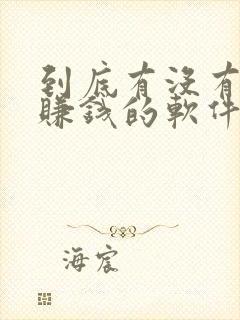 到底有沒有
賺錢的軟件
海宸